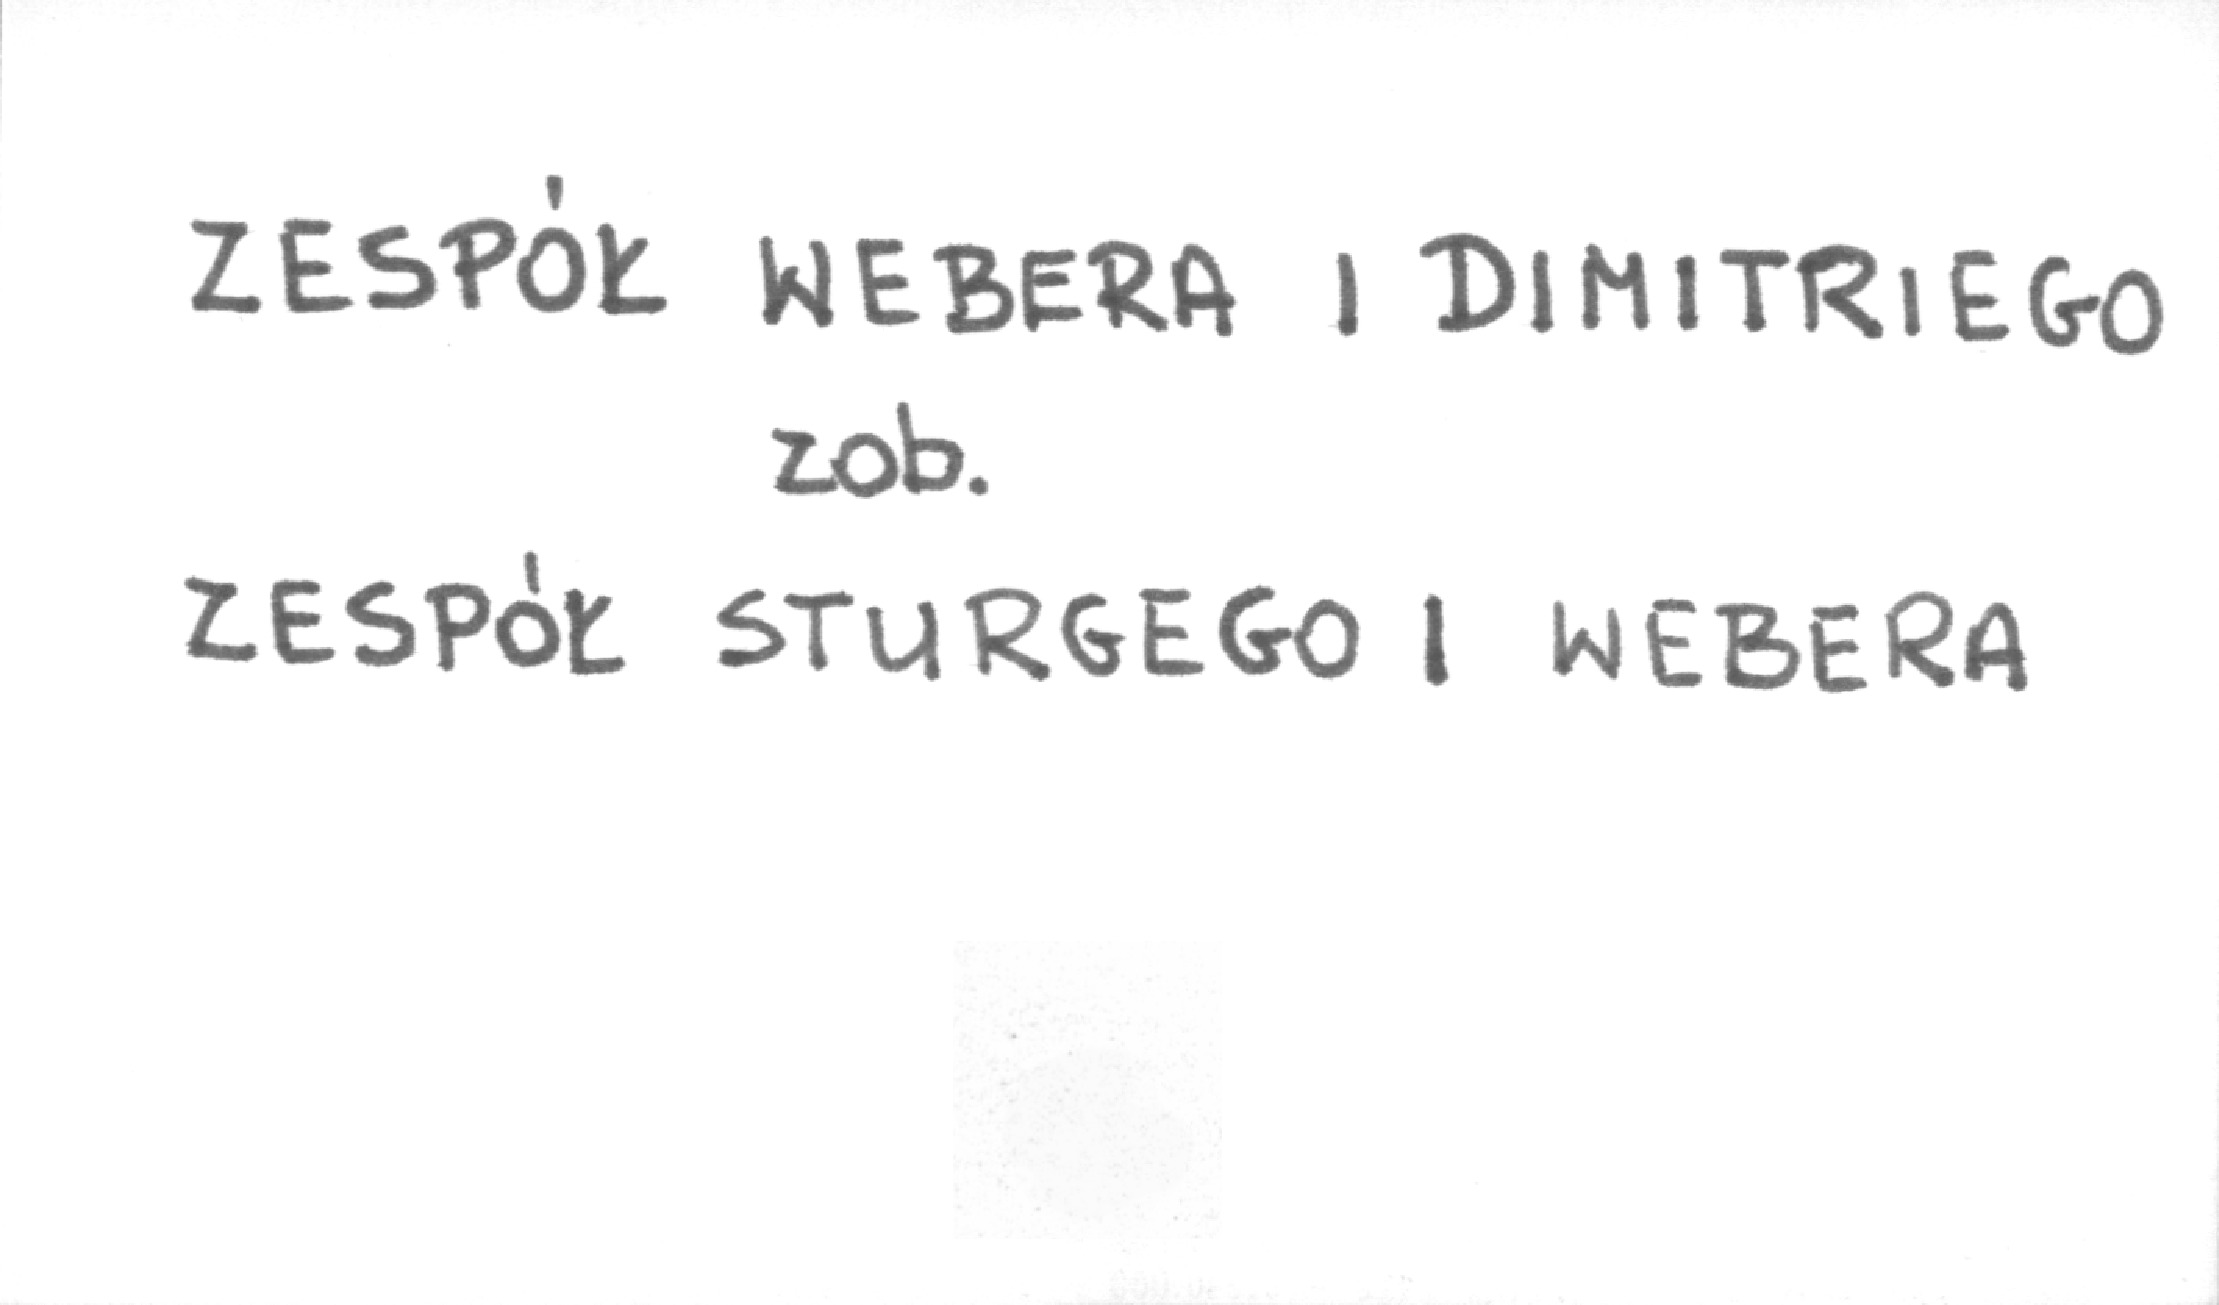 ZESPÓŁ WEBERA I DIMITRIEGO
zob.
ZESPÓŁ STURGEGO I WEBERA